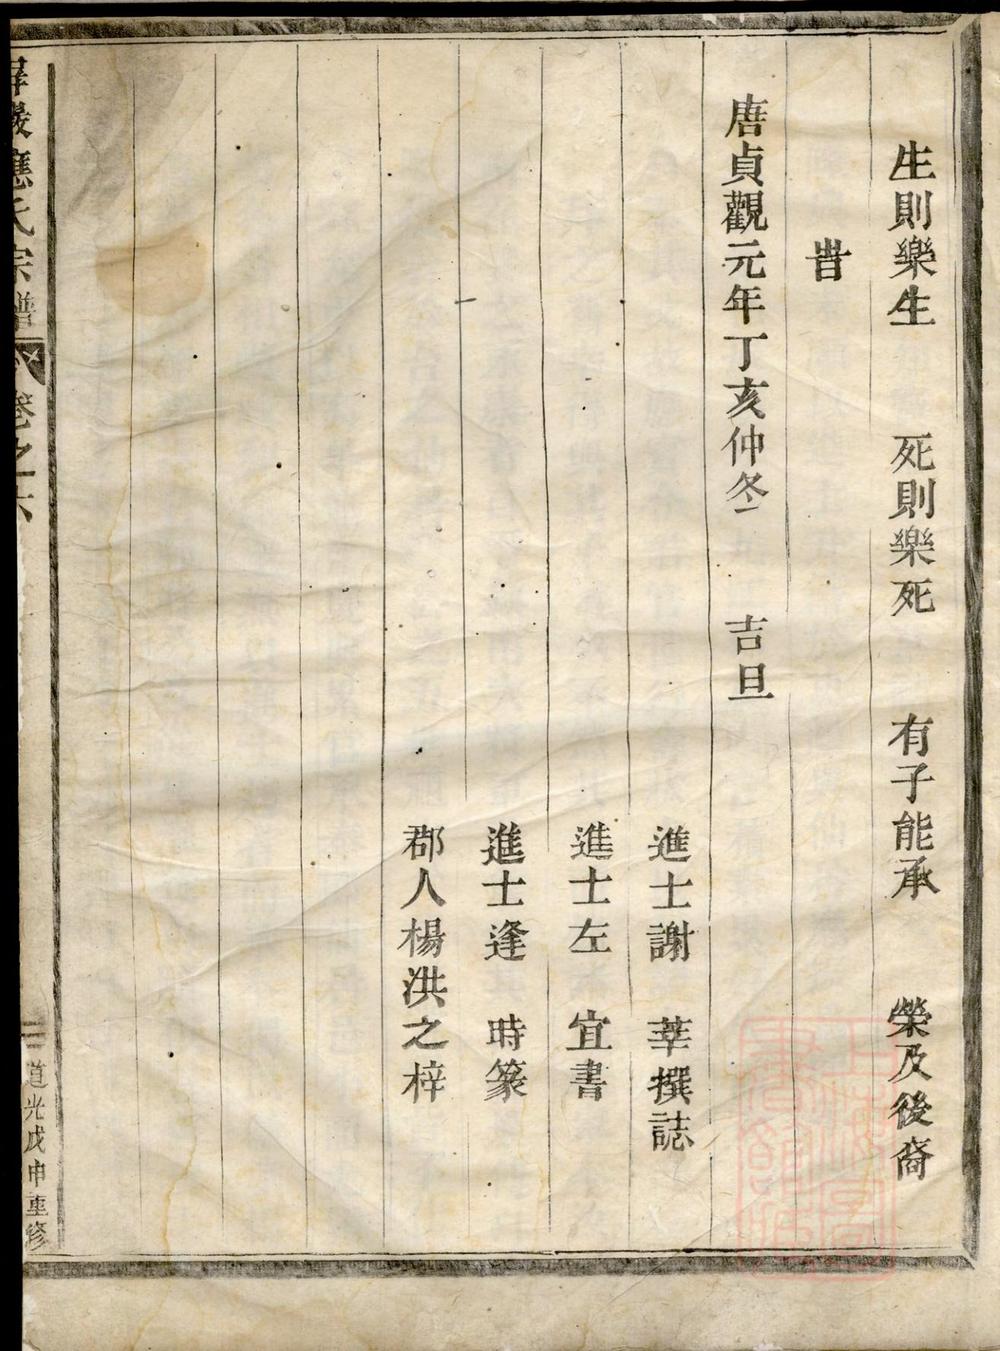 生則樂生　死則樂死　有子能承　榮及後裔
旹
唐貞觀元年丁亥仲冬　吉旦
進士謝　莘撰誌
進士左　宜書
進士逢　時篆
郡人楊洪之梓
屏巖應氏宗譜　卷之六　二　道光戊申重修